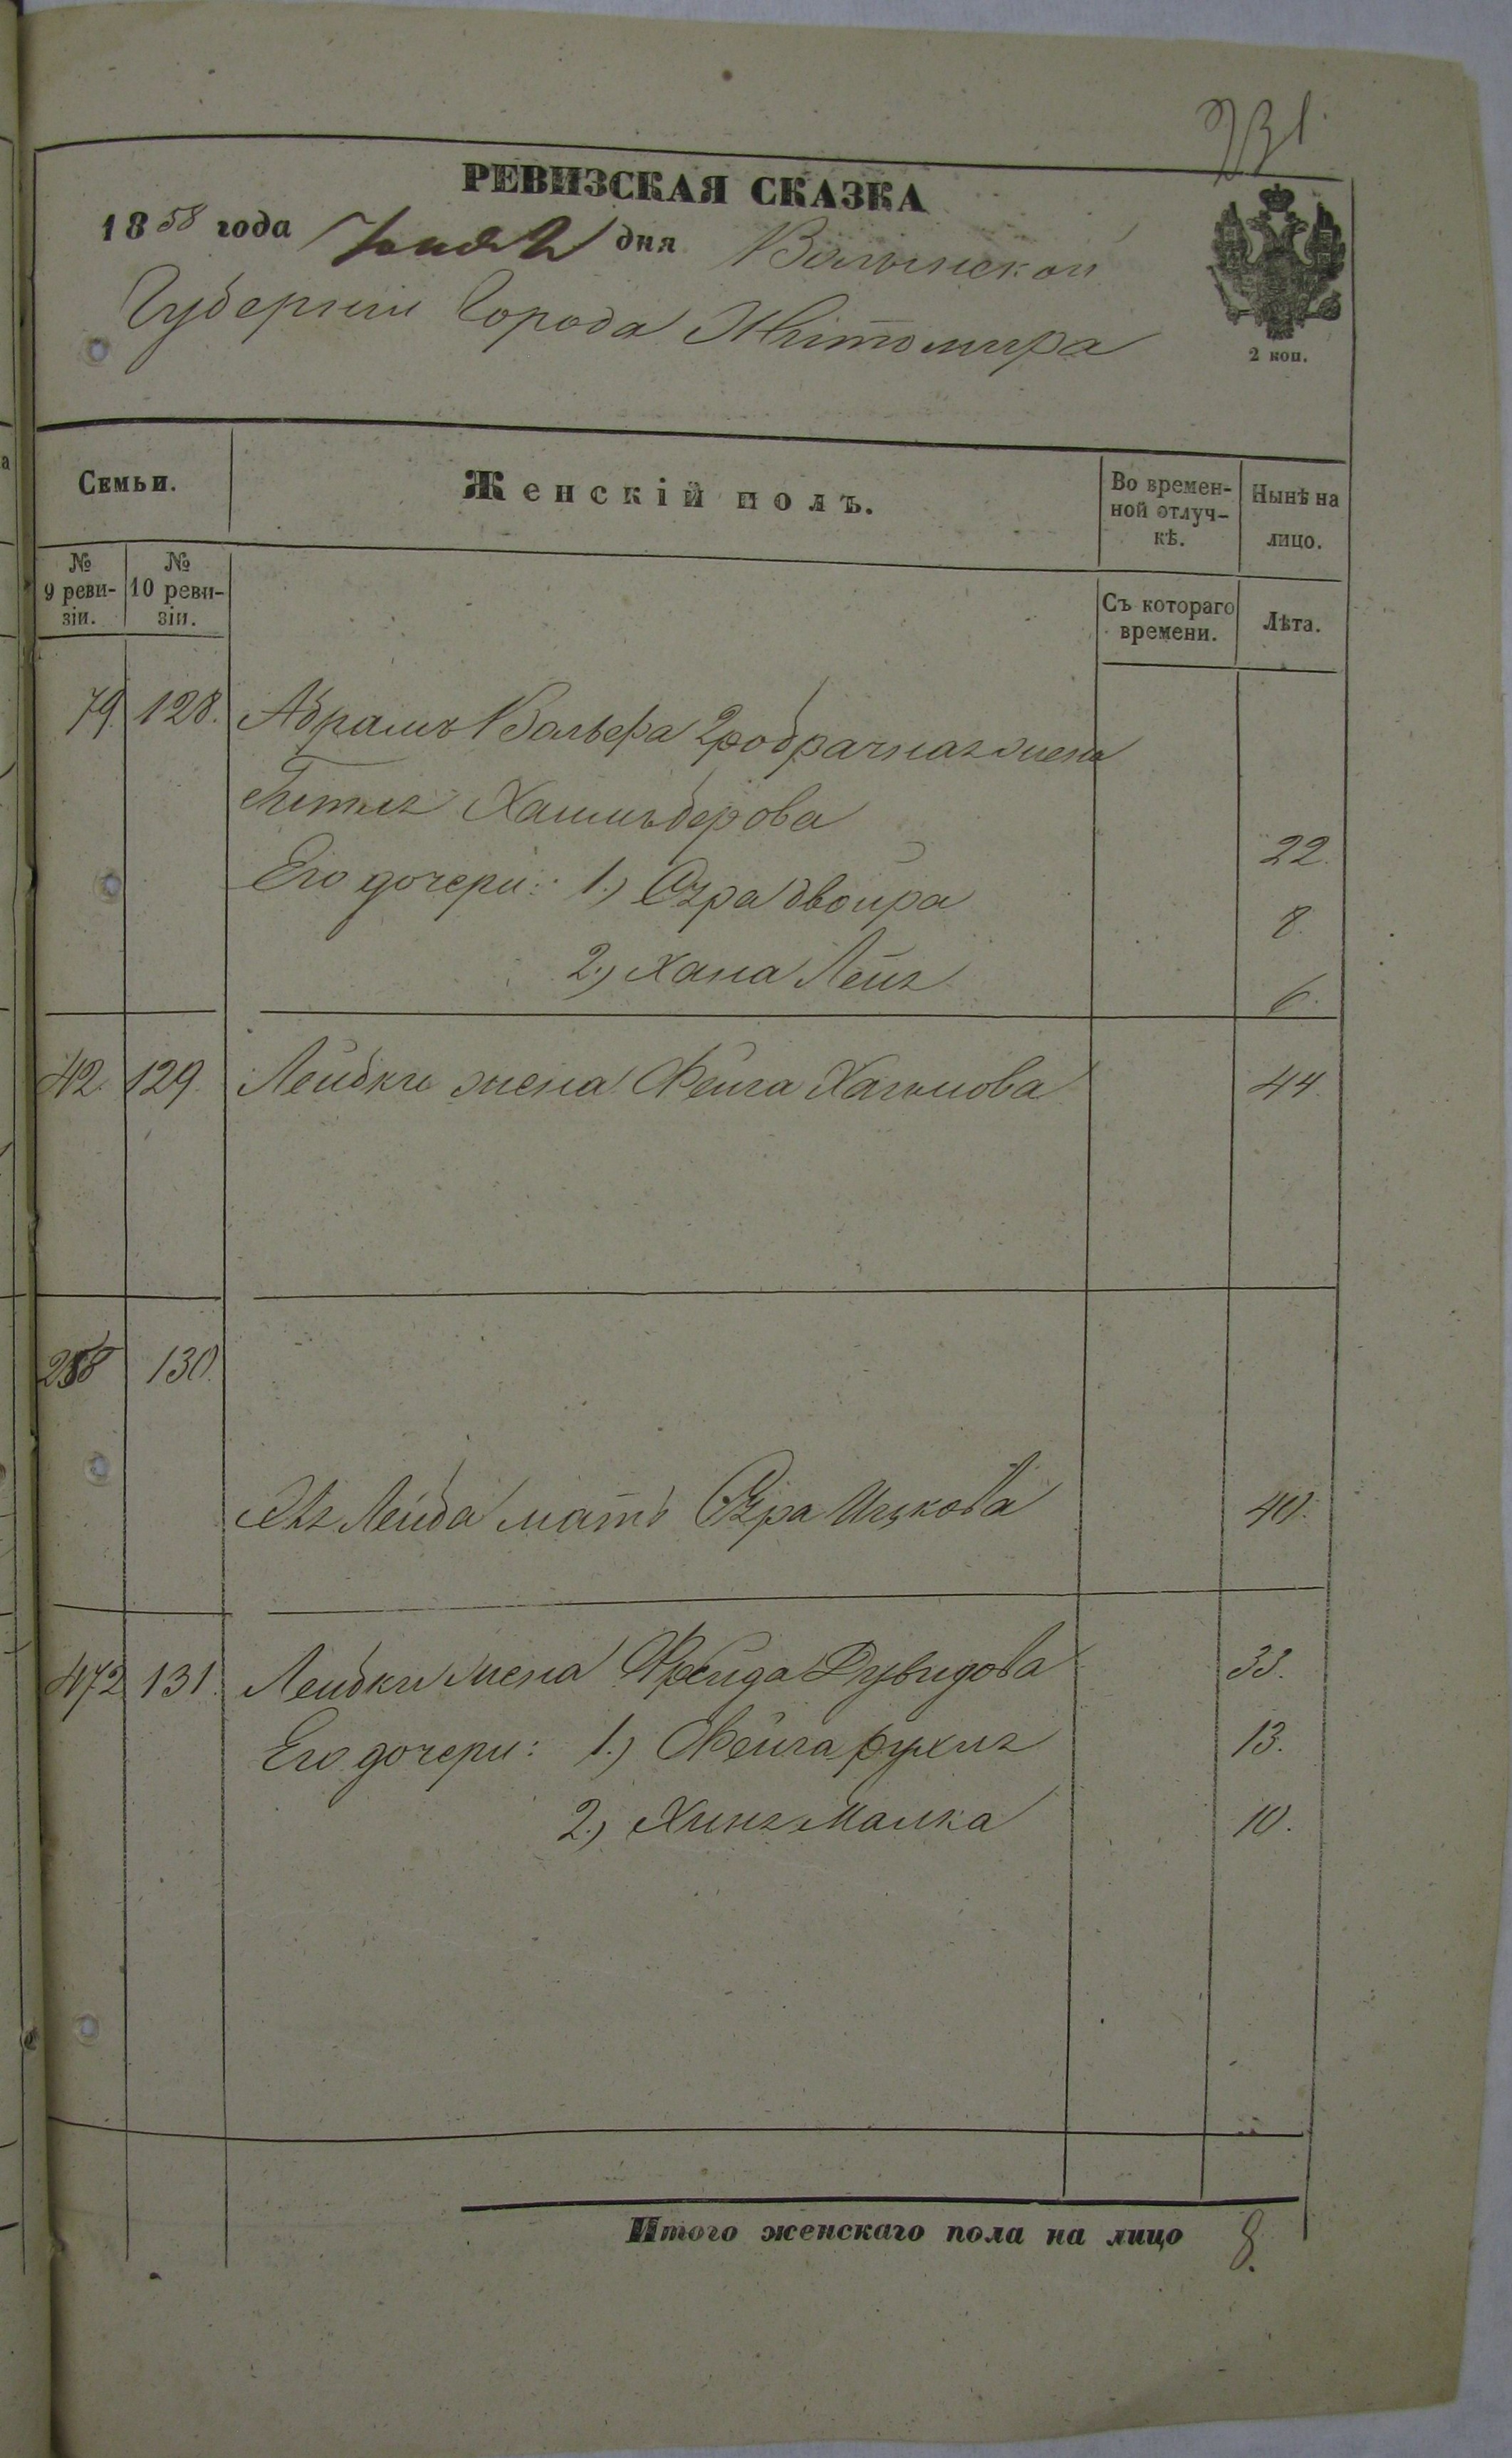 231.
РЕВИЗСКАЯ СКАЗКА
1858 года дня Волынской
Губернии Города Житомира
2 коп.
Семьи.
Женскій полъ.
Во времен-
ной отлуч-
кѣ.
Нынѣ на
лицо.
№
9 реви-
зіи.
№
10 реви-
зіи.
Съ котораго
времени.
Лѣта.
79. 128. Абрамъ Вольфа 2робрачная жена
22.
Его дочери: 1.) Сура Двойра 8.
2.) Хана Лея 6.
42. 129. Лейбки жена Фейга Хаимова 44.
258 130.
Лейба мать Сура Ицкова 40.
472 131. Лейбки жена Фрейда Дувидова 33.
Его дочери: 1.) Фейга рухля 13.
2.) Хиня Малка 10.
Итого женскаго пола на лицо 8.